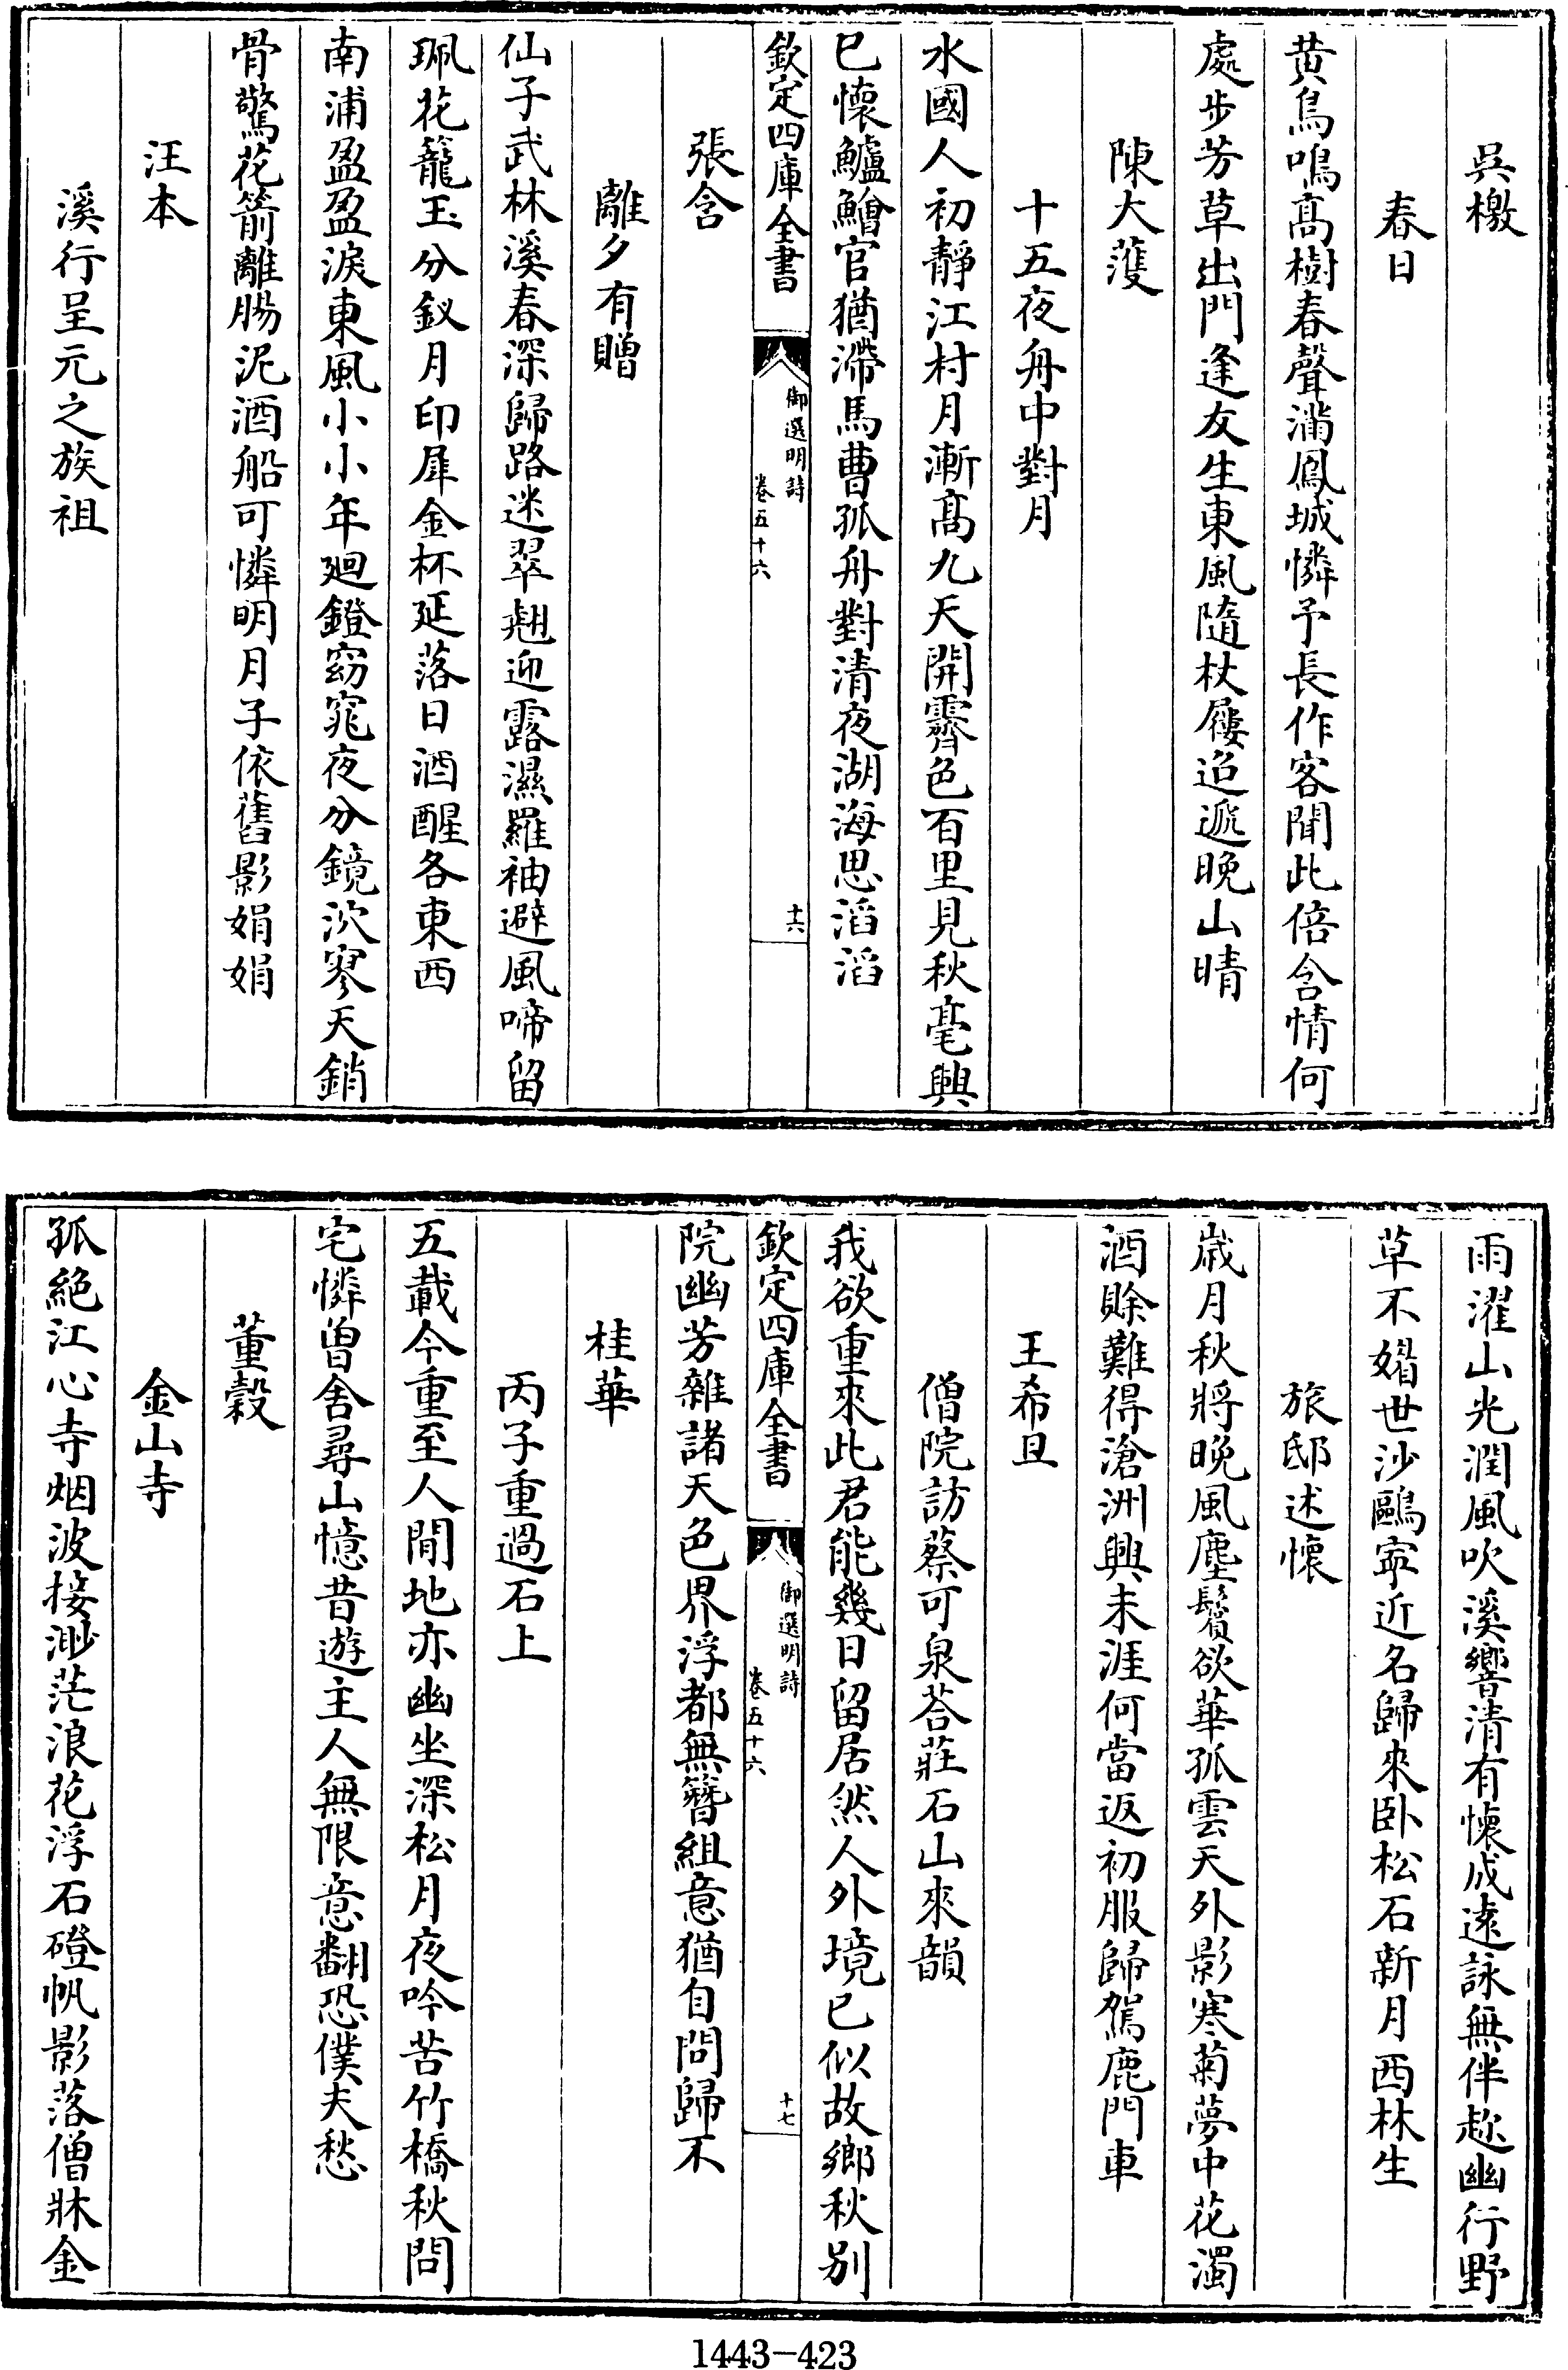 吳檄
春日
黄鳥鳴髙樹春聲滿鳳城憐予長作客聞此倍含情何
處步芳草出門逢友生東風隨杖屨迢遞晚山晴
陳大濩
十五夜舟中對月
水國人初靜江村月漸髙九天開霽色百里見秋毫興
已懷鱸鱠官猶滯馬曹孤舟對清夜湖海思滔滔
欽定四庫全書
御選明詩
卷五十六
十六
張含
離夕有贈
仙子武林溪春深歸路迷翠翹迎露濕羅袖避風啼留
珮花籠玉分釵月印犀金杯延落日酒醒各東西
南浦盈盈淚東風小小年廻鐙窈窕夜分鏡泬寥天銷
骨驚花箭離腸泥酒船可憐明月子依舊影娟娟
汪本
溪行呈元之族祖
雨濯山光潤風吹溪響清有懷成遠詠無伴趂幽行野
草不媚世沙鷗寧近名歸來卧松石新月西林生
旅邸述懷
歲月秋將晚風塵鬢欲華孤雲天外影寒菊夢中花濁
酒賒難得滄洲興未涯何當返初服歸駕鹿門車
王希旦
僧院訪蔡可泉荅莊石山來韻
我欲重來此君能幾日留居然人外境已似故鄉秋別
欽定四庫全書
御選明詩
卷五十六
十七
院幽芳雜諸天色界浮都無簪組意猶自問歸不
桂華
丙子重過石上
五載今重至人間地亦幽坐深松月夜吟苦竹橋秋問
宅憐曾舍尋山憶昔遊主人無限意翻恐僕夫愁
董榖
金山寺
孤絶江心寺烟波接渺茫浪花浮石磴帆影落僧牀金
1443-423